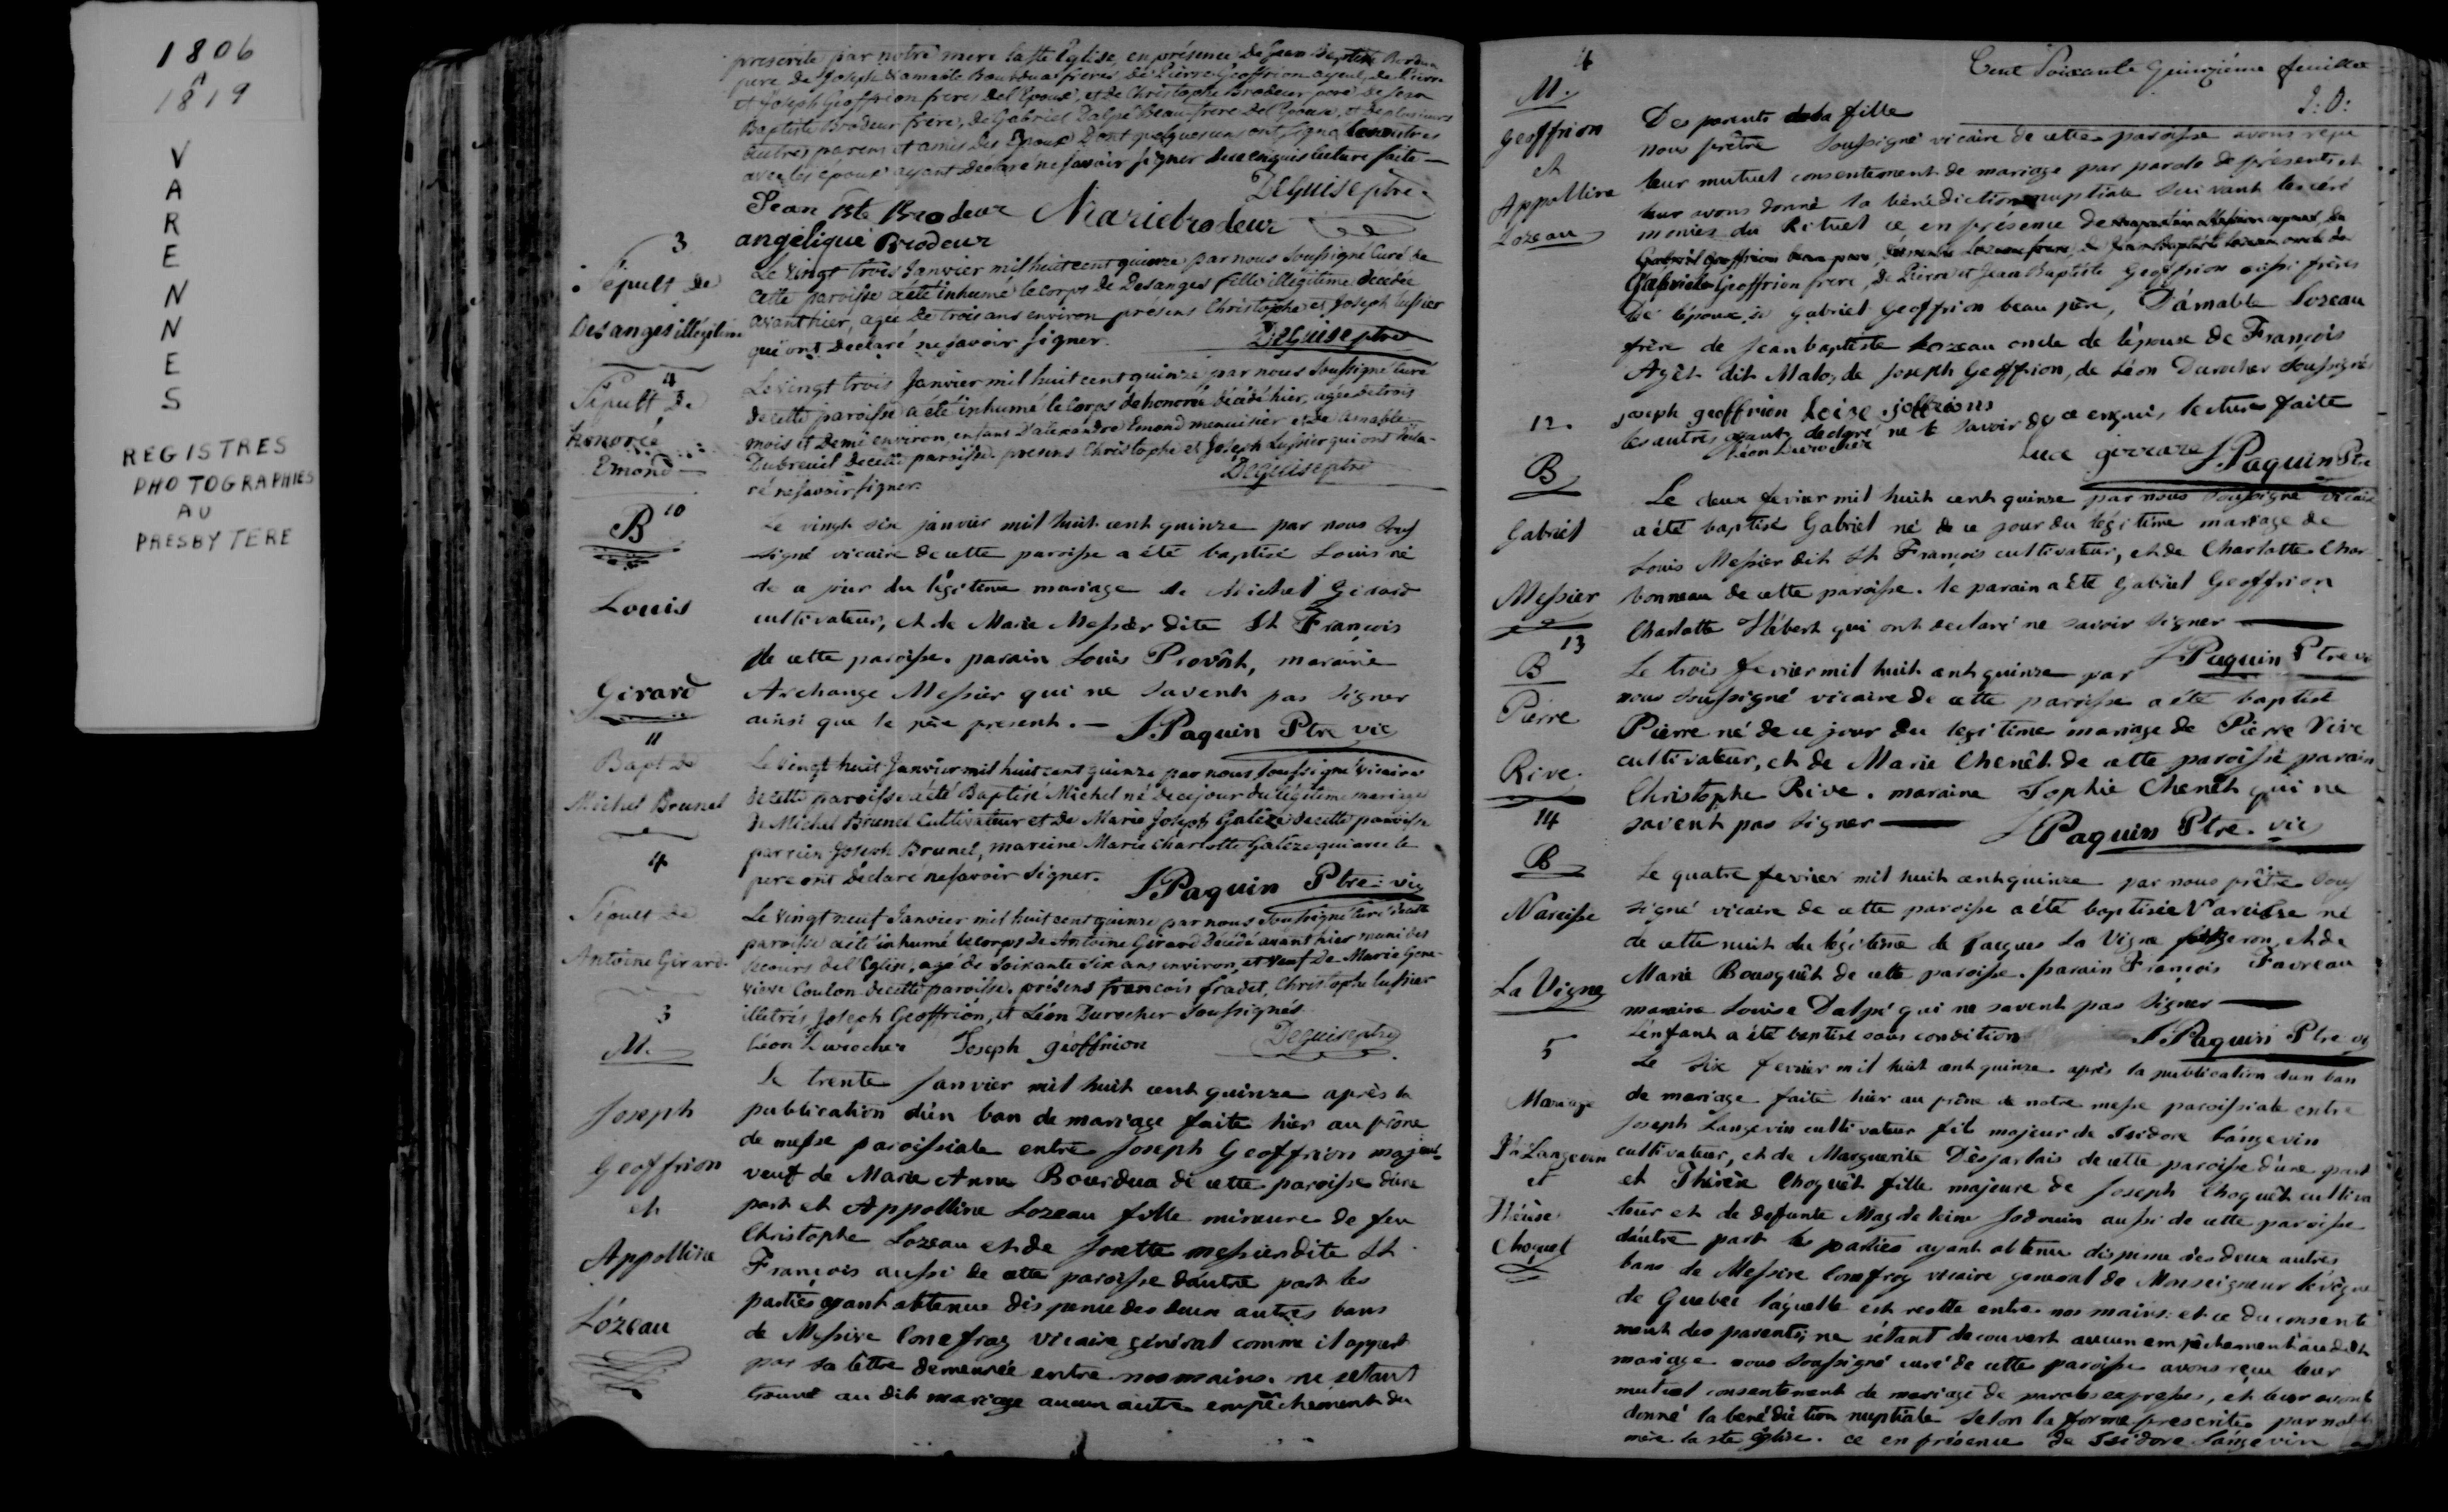 1806
A
1819
V
A
R
E
N
N
E
S
REGISTRES
PHOTOGRAPHIES
AU
PRESBYTERE
prescrite par notre mere la Ste Eglise, en présence de Jean Baptiste
pere de Joseph et amable Bourdua freres de Pierre Geoffrion ayeul, de Pierre
et Joseph Geoffrion freres de l'Epoux, et de Christophe Brodeur pere de Jean
Baptiste Brodeur frère, de Gabriel Dalpé Beau-frere de l'Epouse, et de plusieurs
autres parens et amis des Epoux Dont quelques uns ont signé les autres
avec les époux ayant déclaré ne savoir signer de ce enquis lecture faite
Deguise ptre
Jean Bte Brodeur Marie brodeur
angélique Brodeur
3
Sépult de
Des anges illégitime
Le vingt trois Janvier mil huit cent quinze par nous soussigné Curé de
cette paroisse a été inhumé le corps de Desanges fille illégitime décédée
avant hier, agée de trois ans environ présens Christophe et Joseph lussier
qui ont declaré ne savoir signer. Deguise ptre
4
Sépult de
honorée
Emond
Le vingt trois Janvier mil huit cent quinze par nous soussigné Curé
de cette paroisse a été inhumé le corps de honorée décédé hier, agée de trois
mois et demi environ, enfant d'alexandre Emond menuisier et de amable
Dubreuil de cette paroisse presens Christophe et Joseph Lussier qui ont décla-
ré ne savoir signer. Deguise ptre
B 10
Louis
Girard
Le vingt six janvier mil huit cent quinze par nous sous
signé vicaire de cette paroisse a été baptisé Louis né
de ce jour du légitime mariage de Michel Girard
cultivateur, et de Marie Messier dite St François
de cette paroisse. parain Louis Provôst, maraine
Archange Messier qui ne savent pas signer
ainsi que le père present. — J. Paquin Ptre vic
11
Bapt de
Michel Brunel
Le vingt huit Janvier mil huit cent quinze par nous soussigné Vicaire
de cette paroisse a été Baptisé Michel né de ce jour du légitime mariage
de Michel Brunel Cultivateur et de Marie Joseph Galèze de cette paroisse
parrein Joseph Brunel, mareine Marie Charlotte Galeze qui avec le
pere ont déclaré ne savoir signer. J. Paquin Ptre vic
4
Sépult de
Antoine Girard
Le vingt neuf Janvier mil huit cent quinze par nous soussigné Curé de cette
paroisse a été inhumé le corps de Antoine Girard décédé avant hier muni des
secours de l'Eglise, agé de soixante six ans environ, et veuf de Marie Gene-
vieve Coulon de cette paroisse. présens francois fradet, Christophe lussier
illetrés Joseph Geoffrion, et Léon Durocher soussignés.
Léon Durocher Joseph géoffrion Deguise ptre
3
M.
Joseph
Geoffrion
et
Appolline
Lozeau
Le trente Janvier mil huit cent quinze après la
publication d'un ban de mariage faite hier au prône
de messe paroissiale entre Joseph Geoffrion majeur
veuf de Marie Anne Bourdua de cette paroisse d'une
part et Appolline Lozeau fille mineure de feu
Christophe Lozeau et de Josette messier dite St
François aussi de cette paroisse d'autre part les
parties ayant obtenue dispense des deux autres bans
de Messire Conefroy vicaire général comme il appert
par sa lettre demeurée entre nos mains. ne s'étant
trouvé au dit mariage aucun autre empêchement du
Cent Soixante Quinzième feuillet
J: D:
4
M.
geoffrion
et
Appolline
Lozeau
Des parents de la fille
nous prêtre soussigné vicaire de cette paroisse avons reçu
leur mutuel consentement de mariage par parole de présents et
leur avons donné la bénédiction nuptiale suivant les céré
monies du Rituel ce en présence de
Gabriel Geoffrion frere, de Pierre et Jean Baptiste Geoffrion aussi frères
De l'époux, de Gabriel Geoffrion beau père, D'amable Lozeau
frère de Jean baptiste Lozeau oncle de l'épouse de François
Agêt dit Malo, de Joseph Geoffrion, de Léon Durocher soussignés
joseph geoffrion
les autres ayants declaré ne le savoir de ce enquis, lecture faite
Léon Durocher J. Paquin Ptre
12.
B
Gabriel
Messier
Le deux fevrier mil huit cent quinze par nous soussigné vicaire
a été baptisé Gabriel né de ce jour du légitime mariage de
Louis Messier dit St François cultivateur, et de Charlotte Char
bonneau de cette paroisse. le parain a été Gabriel Geoffrion
Charlotte Hébert qui ont declaré ne savoir signer
J. Paquin Ptre vic
13
B
Pierre
Rive
Le trois fevrier mil huit cent quinze par
nous soussigné vicaire de cette paroisse a été baptisé
Pierre né de ce jour du legitime mariage de Pierre Rive
cultivateur, et de Marie Chenêt de cette paroisse parain
Christophe Rive. maraine Sophie Chenêt qui ne
savent pas signer — J. Paquin Ptre. vic
14
B
Narcisse
La Vigne
Le quatre fevrier mil huit cent quinze par nous prêtre sous
signé vicaire de cette paroisse a été baptisée Narcisse né
de cette nuit du légitime de Jacques La Vigne forgeron, et de
Marie Bousquêt de cette paroisse. parain François Favreau
maraine Louise Dalpé qui ne savent pas signer
L'enfant a été baptisé sous condition J. Paquin Ptre vic
5
Mariage
Js Langevin
et
Thérèse
Choquet
Le six fevrier mil huit cent quinze après la publication d'un ban
de mariage faite hier au prône de notre messe paroissiale entre
Joseph Langevin cultivateur fils majeur de Isidore Langevin
cultivateur, et de Marguerite Desjarlais de cette paroisse d'une part
et Thérèse Choquêt fille majeure de Joseph Choquêt cultiva
teur et de deffunte Magdeleine Jodouin aussi de cette paroisse
d'autre part les parties ayant obtenu dispense des deux autres
bans de Messire Conefroy vicaire general de Monseigneur l'évêque
de Quebec laquelle est restée entre nos mains. et ce du consente
ment des parents; ne s'étant découvert aucun empêchement au dit
mariage nous soussigné curé de cette paroisse avons reçu leur
mutuel consentement de mariage de paroles expresses, et leur avons
donné la bénédiction nuptiale selon la forme prescrite par notre
mère la ste église. ce en présence de Isidore Langevin